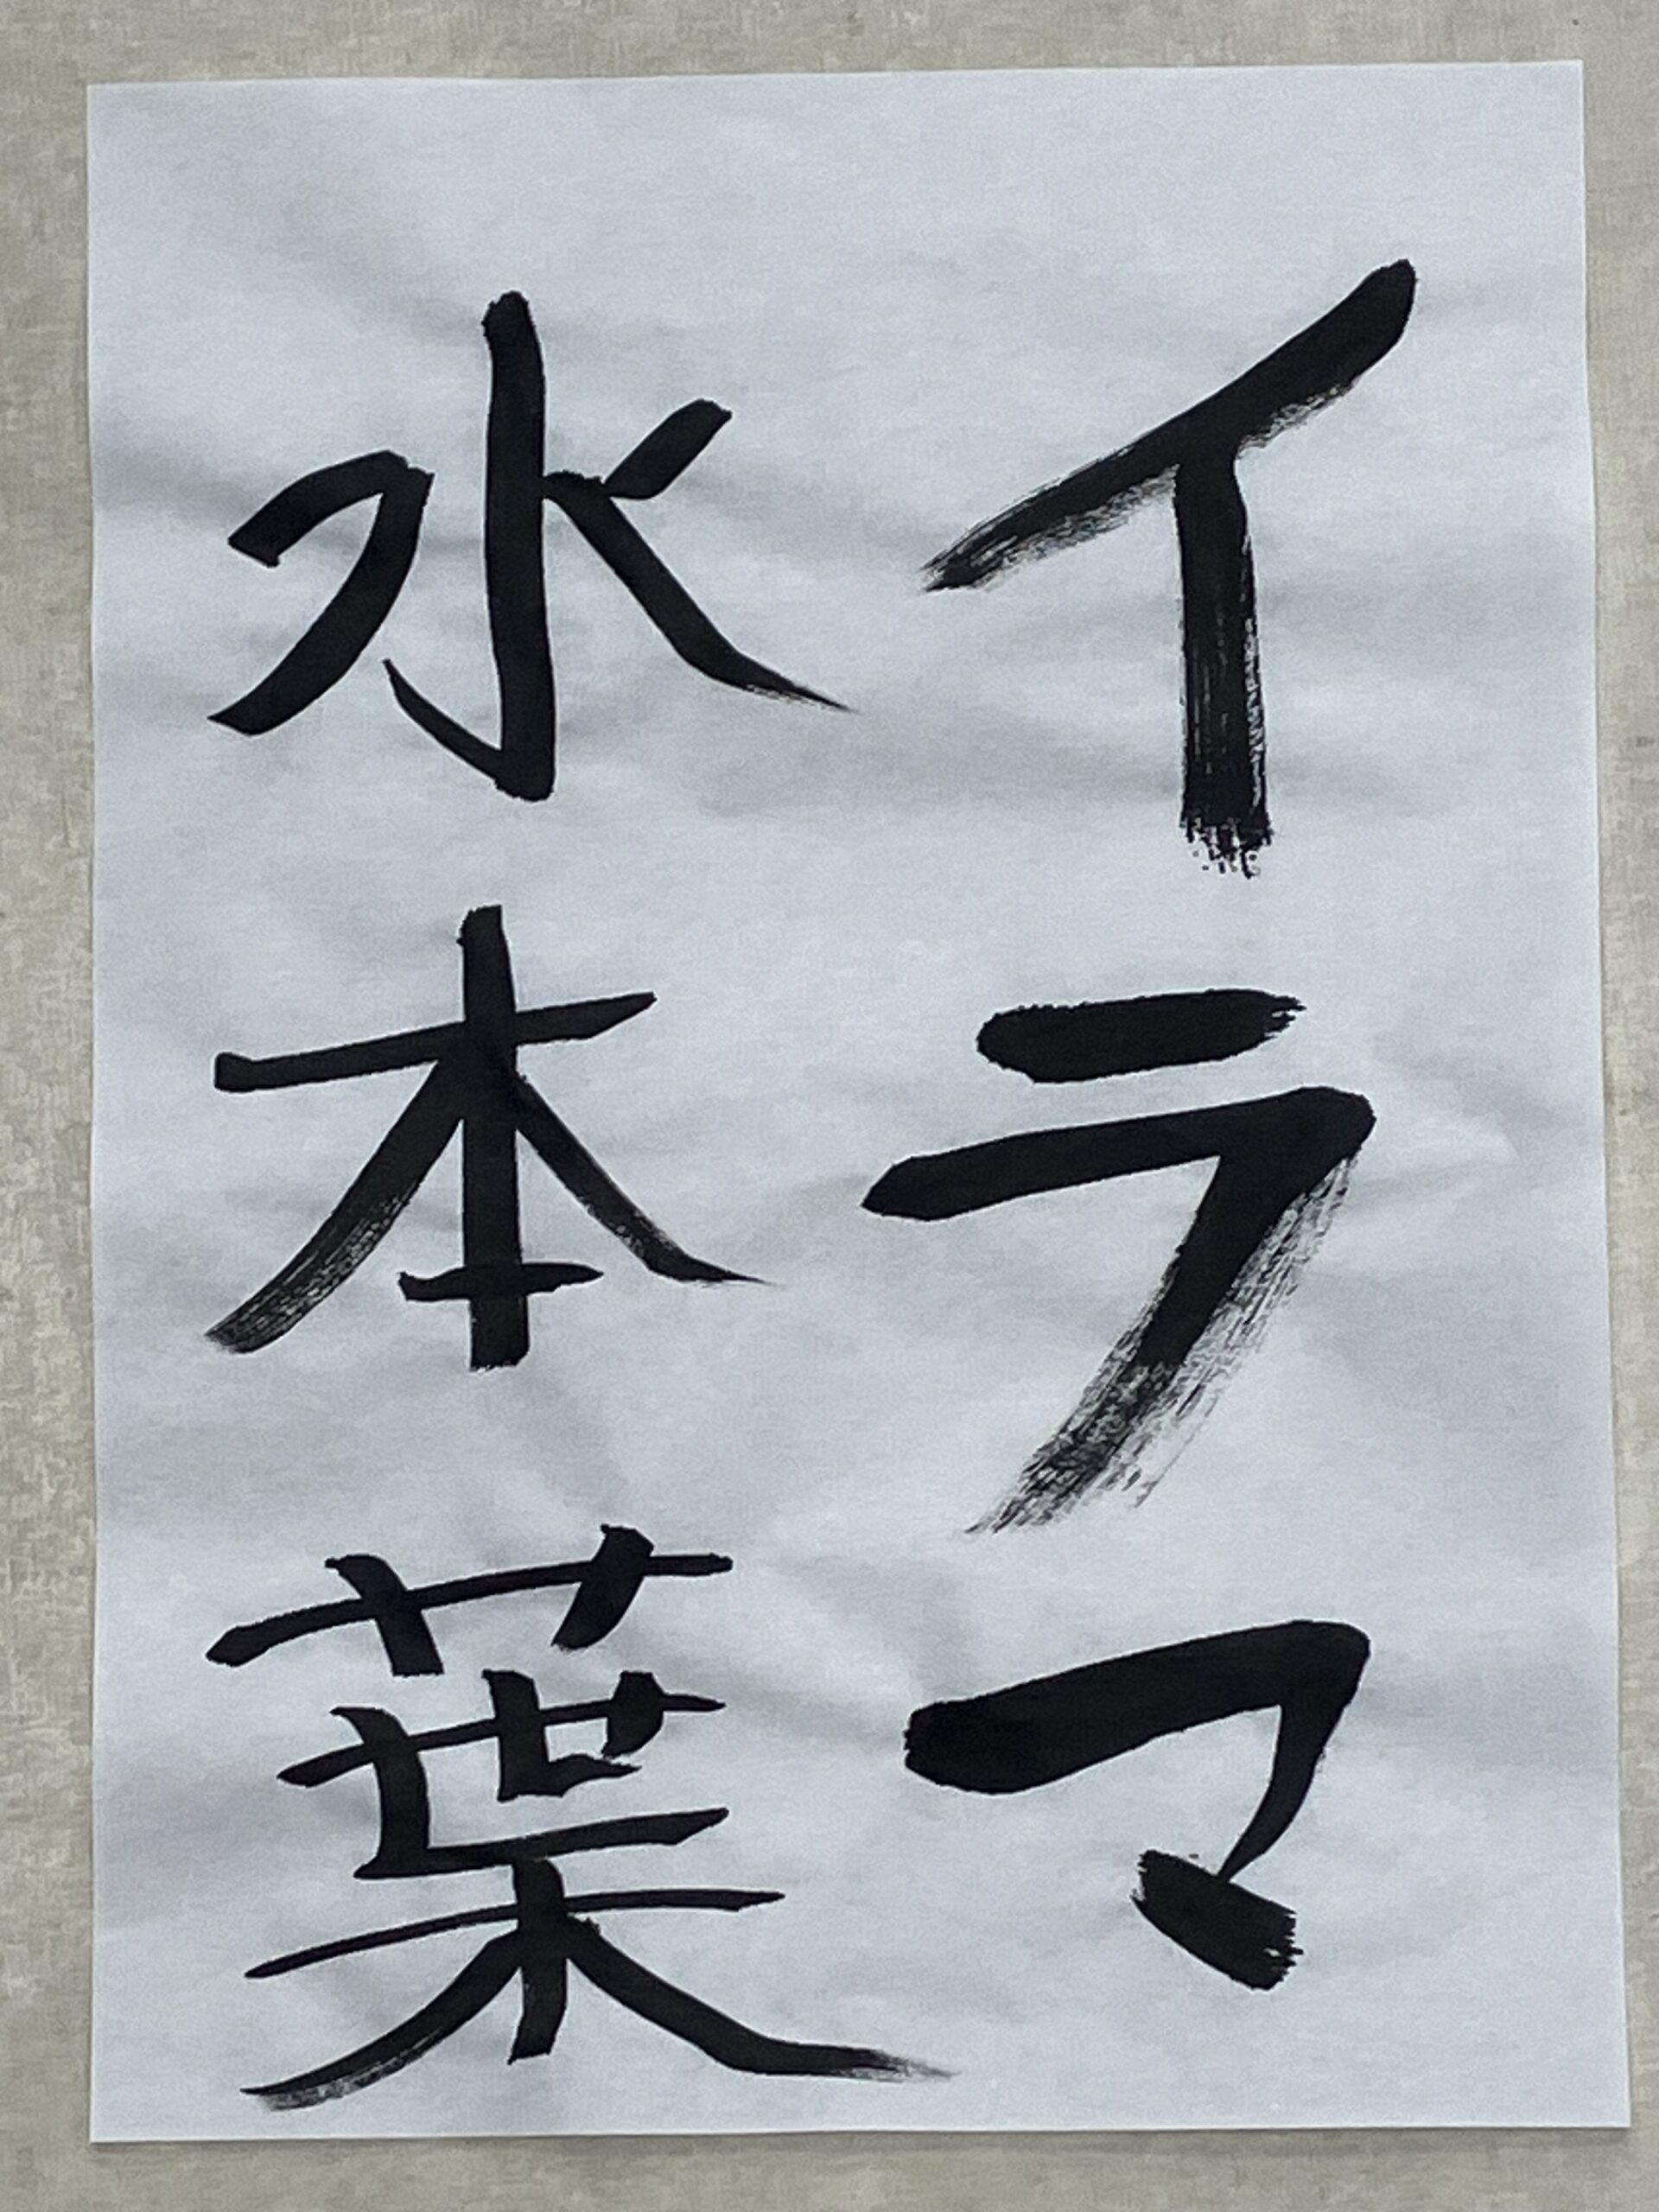 イラマ
水本葉